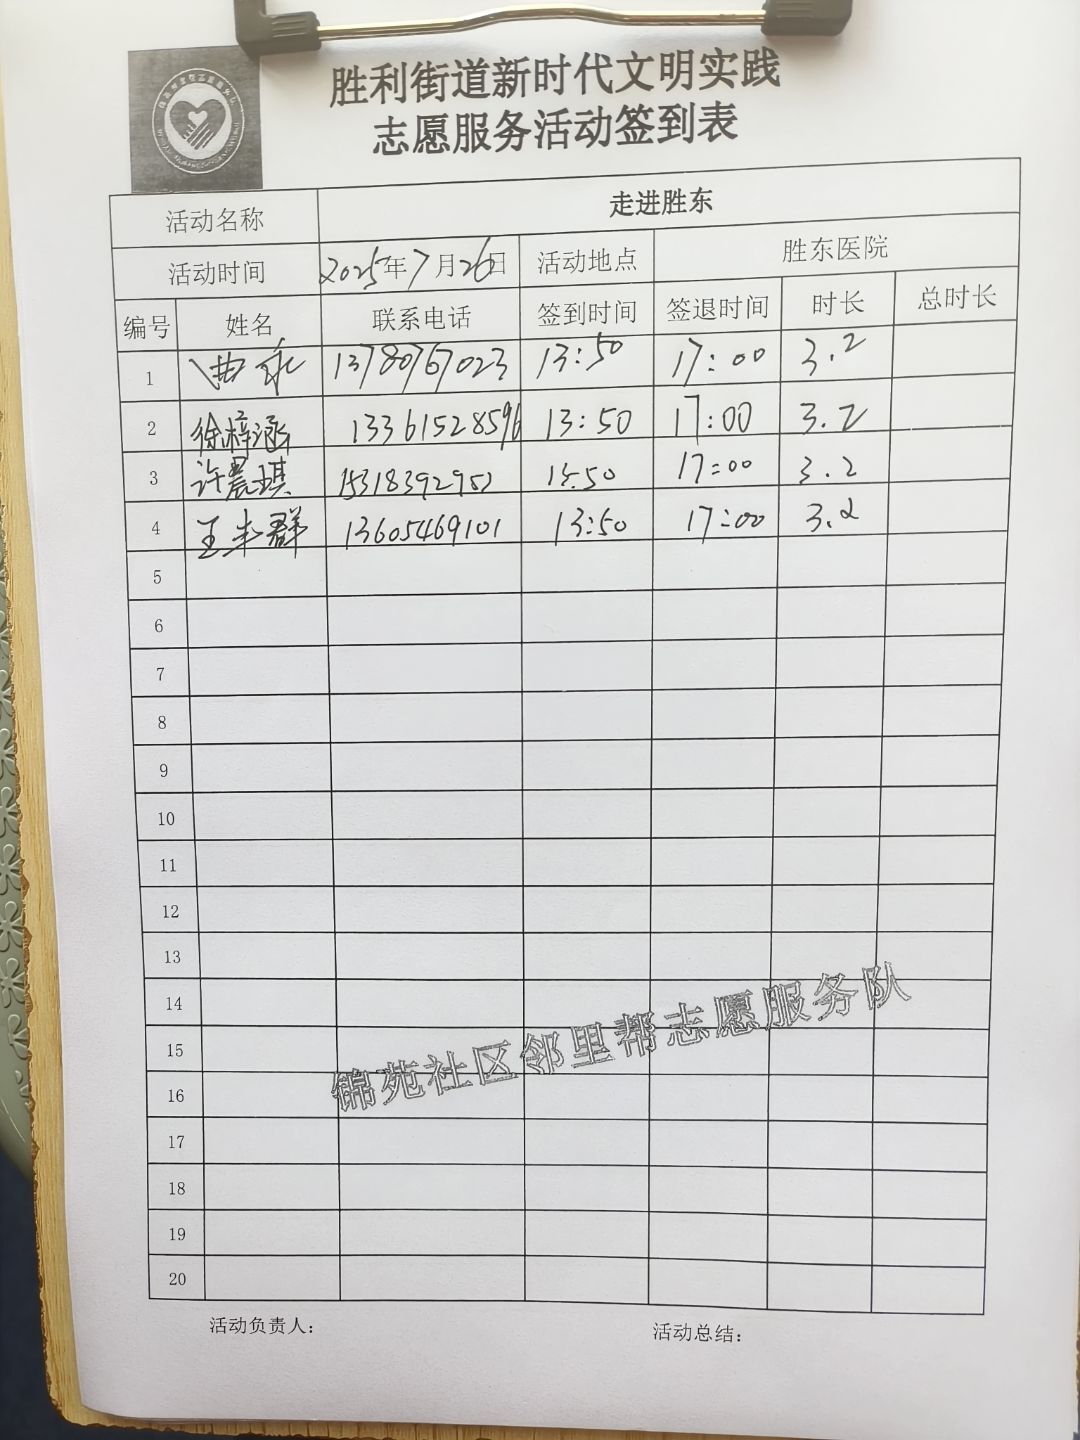 胜利街道新时代文明实践
志愿服务活动签到表
活动名称 走进胜东
活动时间 2025年7月26日 活动地点 胜东医院
编号 姓名 联系电话 签到时间 签退时间 时长 总时长
1 13780767023 13:50 17:00 3.2
2 徐梓涵 13361528596 13:50 17:00 3.2
3 许晨琪 15318392951 13:50 17:00 3.2
4 王丰群 13605469101 13:50 17:00 3.2
5
6
7
8
9
10
11
12
13
14
15
16
17
18
19
20
锦苑社区邻里帮志愿服务队
活动负责人: 活动总结: